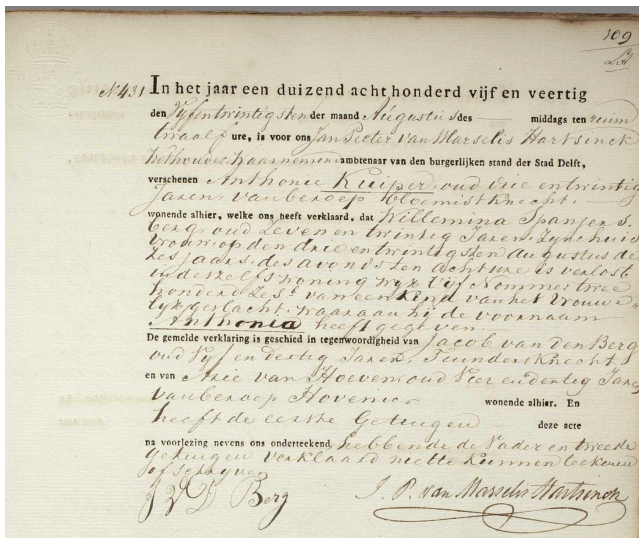 109
N 431 In het jaar een duizend acht honderd vijf en veertig
den Vyfentwintigsten der maand Augustus des middags ten ruim
twaalf ure, is voor ons Jan Pieter van Marselis Hartsinck
Wethouder waarnemend ambtenaar van den burgerlijken stand der Stad Delft,
verschenen Anthonie Kuiper, oud drie entwintig
Jaren van beroep bloemistknecht.
wonende alhier, welke ons heeft verklaard, dat Willemina Spanjers-
berg oud Zeven en twintig Jaren, Zyne huis
vrouw, op den drie entwintigsten augustus de
zes jaars, des avonds ten acht ure is verlost
in deszelfs woning wyk Vyf Nommer twee
honderd Zes, van een Kind van het Vrouwe
lyk geslacht, waaraan hij de voornaam
Anthonia heeft gegeven.
De gemelde verklaring is geschied in tegenwoordigheid van Jacob van den Berg
oud Vyf en dertig Jaren,
en van Arie van Hoeven oud Vier en dertig Jaren
van beroep Hovenier wonende alhier. En
heeft de eerste Getuigen deze acte
na voorlezing nevens ons onderteekend, hebbende de Vader en tweede
getuigen verklaard niet te kunnen teekenen
of schryven
J V D Berg J. P. van Marselis Hartsinck